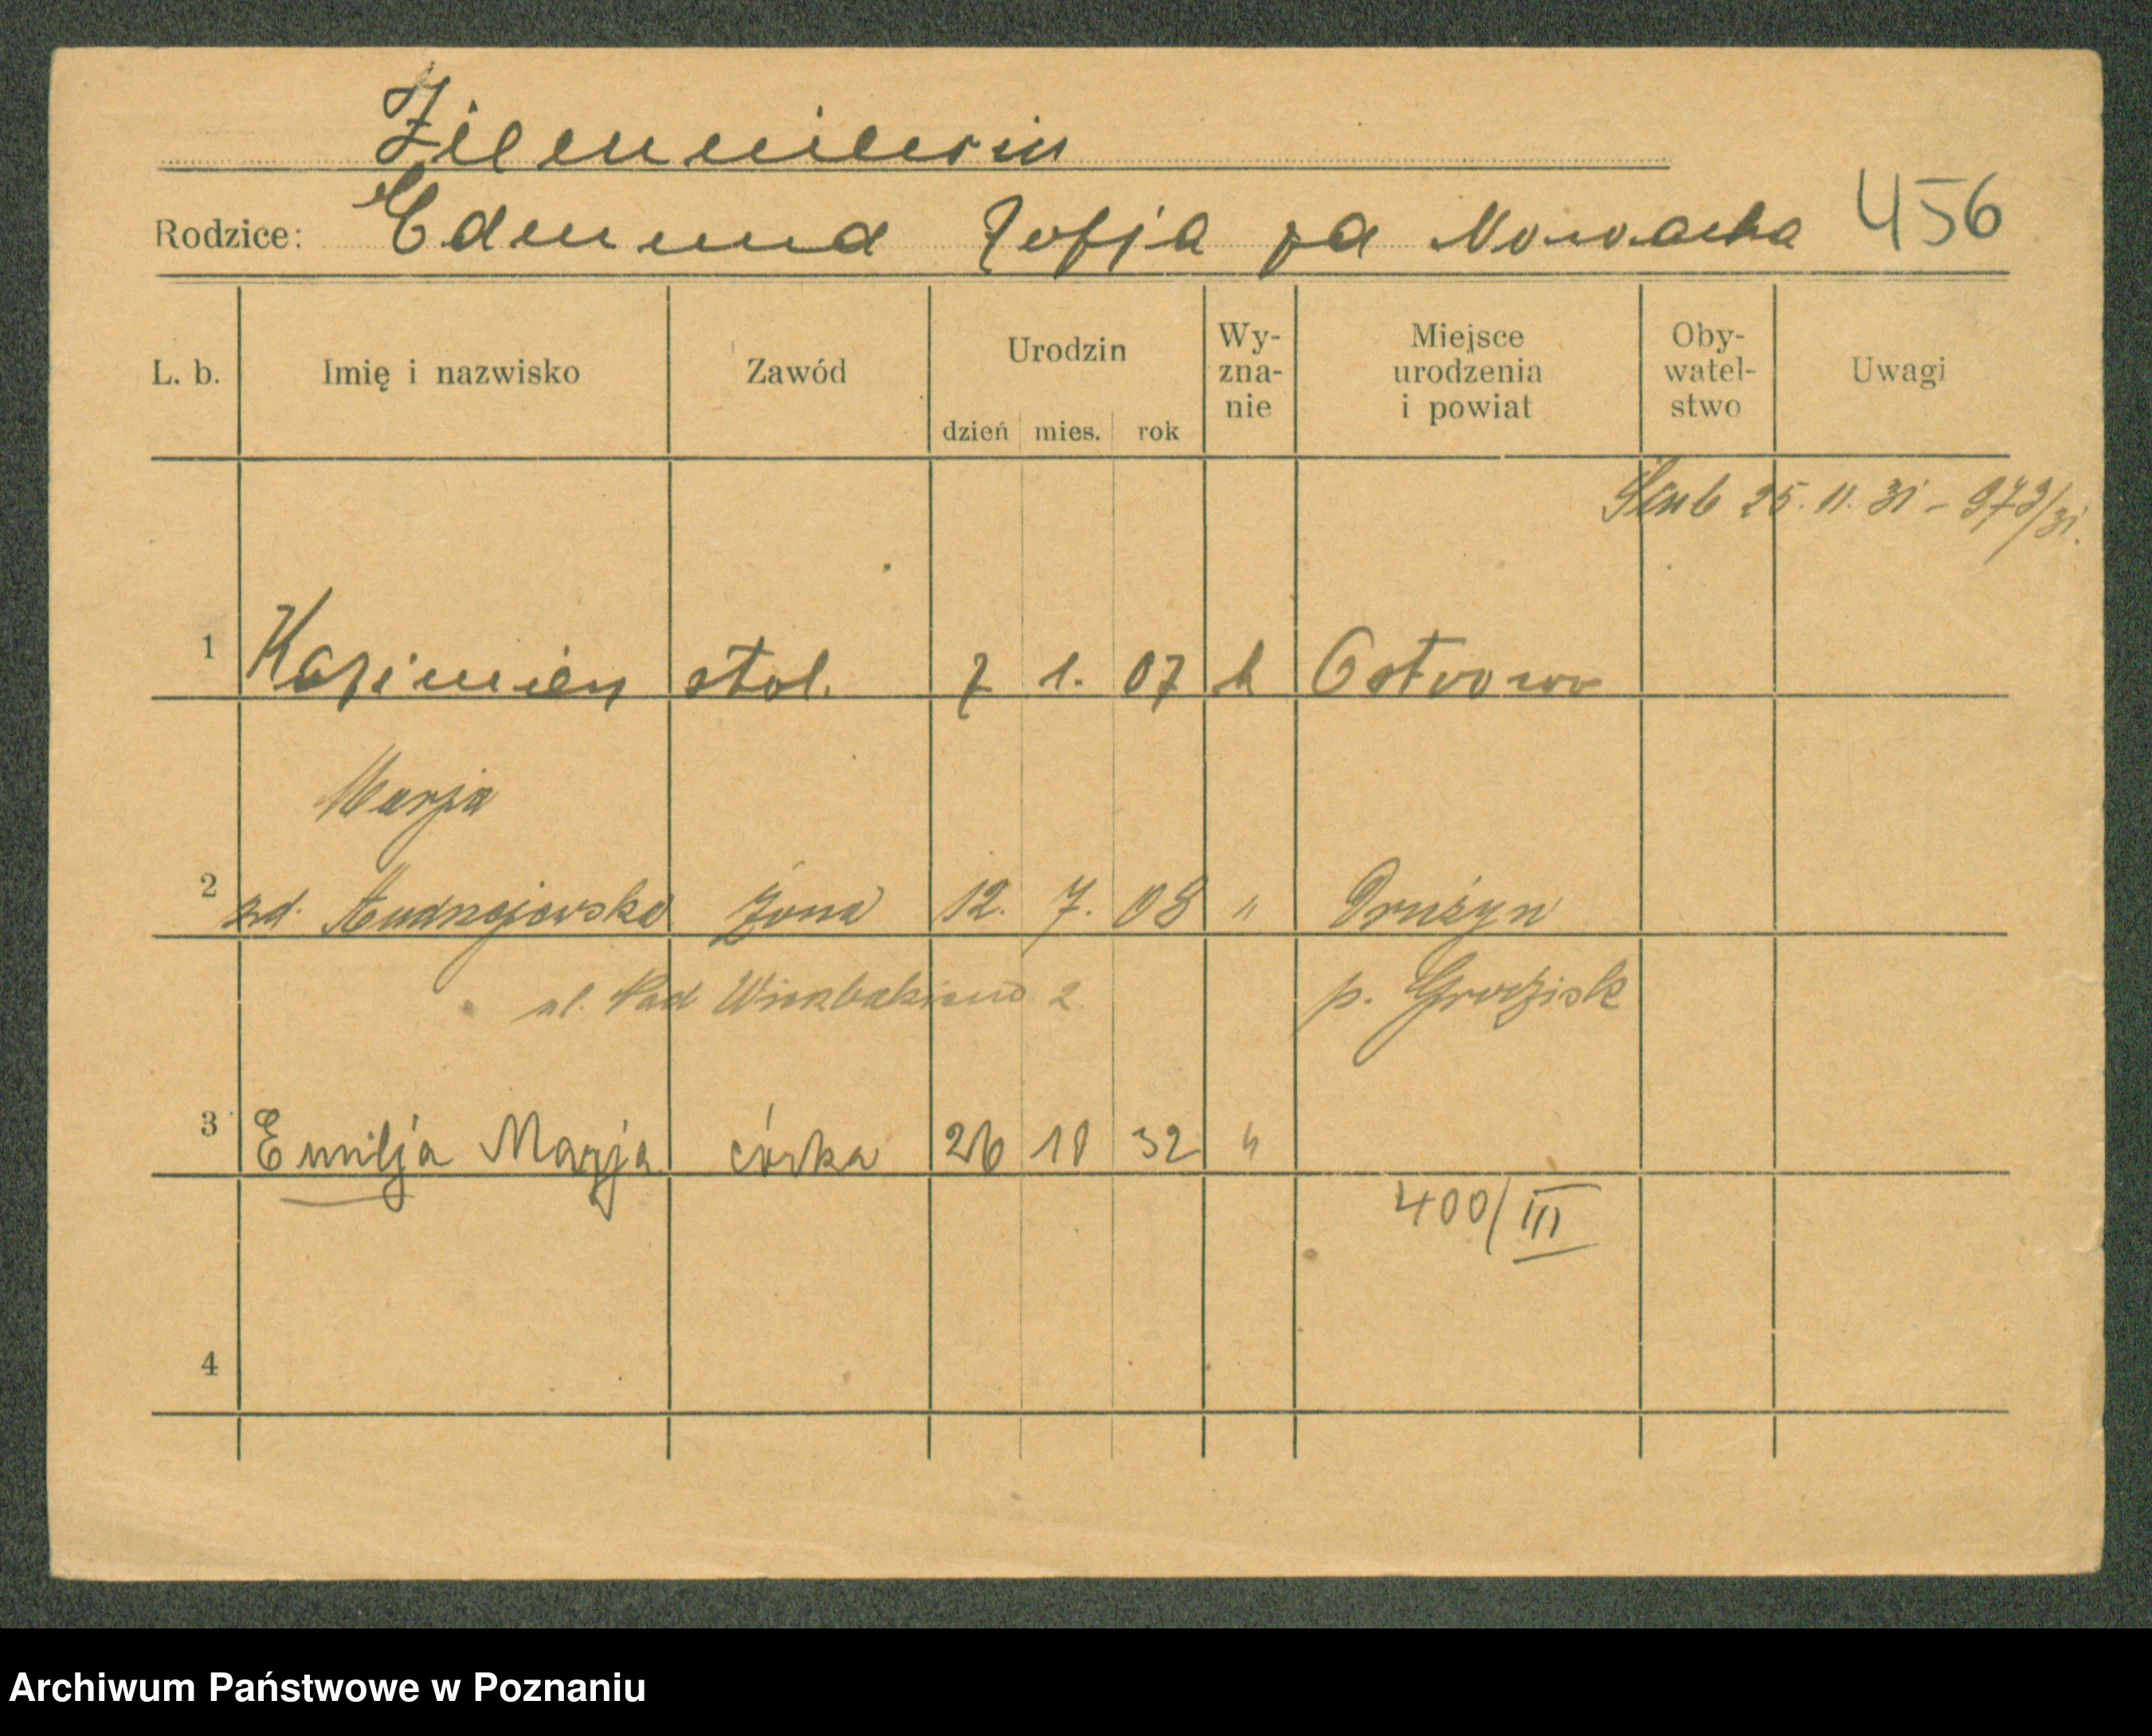 Rodzice: Edmund Zofja zd Nowacka 456
L. b. Imię i nazwisko Zawód Urodzin dzień mies. rok Wy-zna-nie Miejsce urodzenia i powiat Oby-watel-stwo Uwagi
Ślub 25. 11. 31 - 973/31.
1 Kazimierz stol. 7 1. 07 k Ostrowo
Marja
2 zd. Andrzejewska żona 12. 7. 08 " Drużyn
ul. Pod Wierzbakiem 2 p. Grodzisk
3 Emilja Marja córka 26 10 32 "
400/III
4
Archiwum Państwowe w Poznaniu